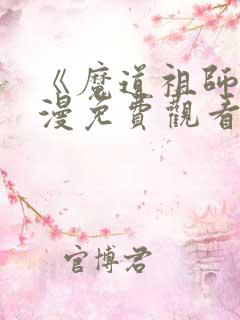 《魔道祖師
漫免費觀看
官博君